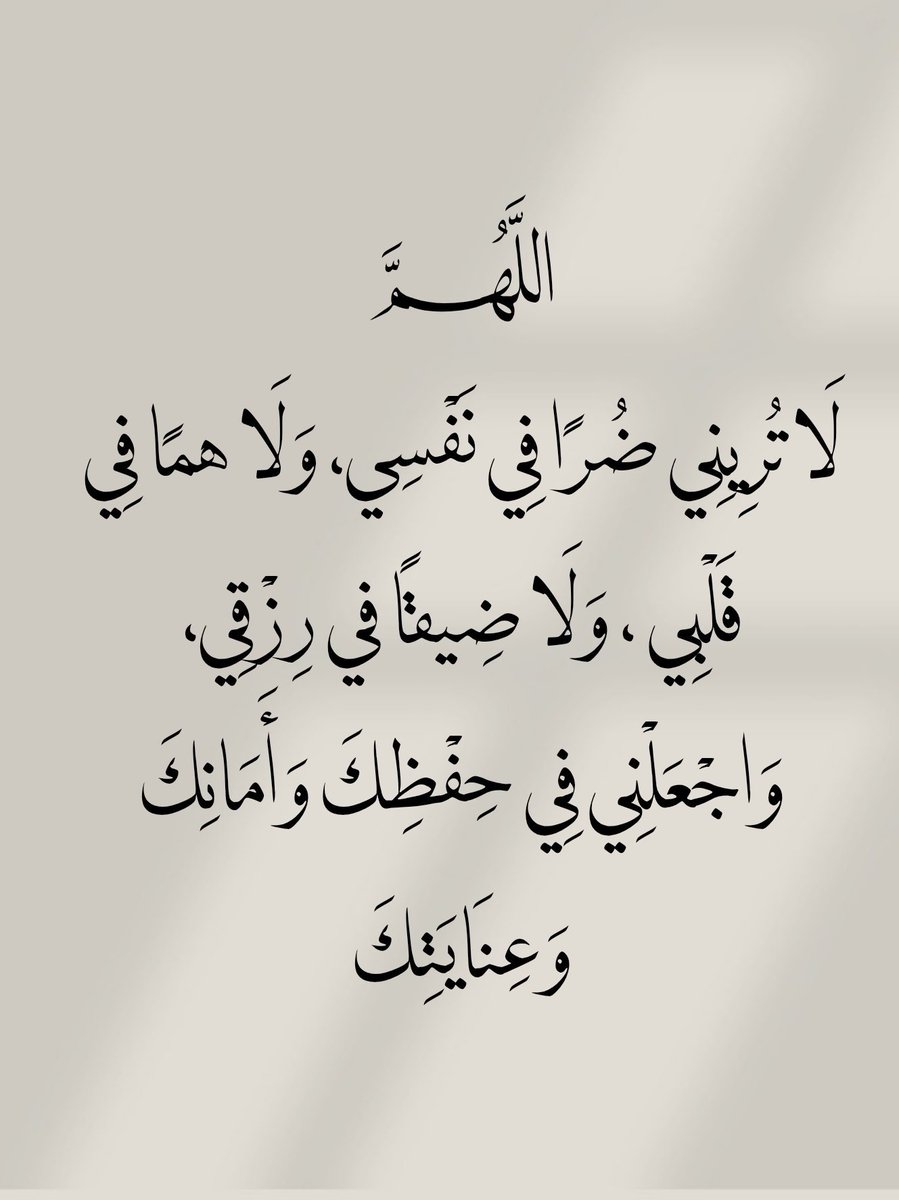 اللَّهُمَّ
لَا تُرِيني ضُرًا فِي نَفْسِي، وَلَا همًا فِي
قَلْبِي ، وَلَا ضِيقًا في رِزْقِي،
وَاجْعَلْنِي فِي حِفْظِكَ وَأَمَانِكَ
وَعِنَايَتِكَ